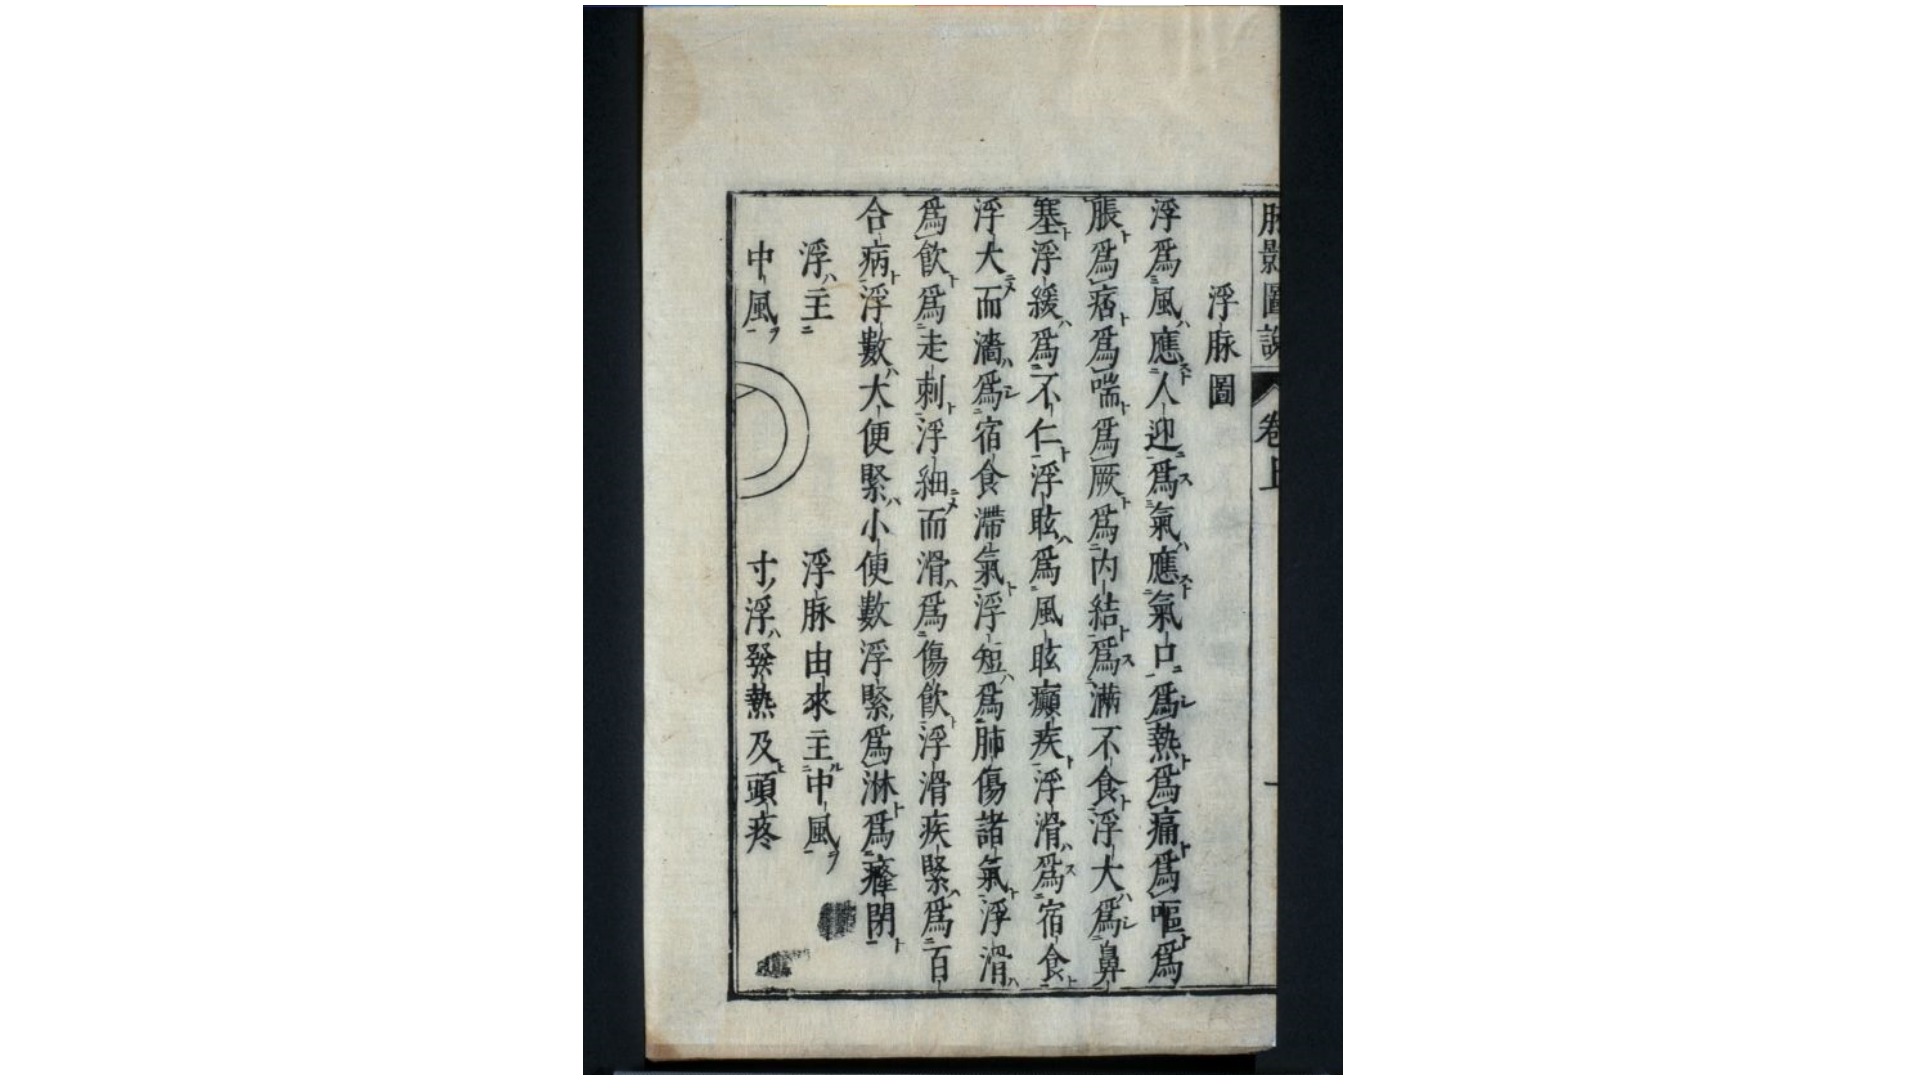 脉影圖說 卷上 一
浮脉圖
浮爲風應人迎爲氣應氣口爲熱爲痛爲嘔爲
脹爲痞爲喘爲厥爲内結爲滿不食浮大爲鼻
塞浮緩爲不仁浮眩爲風眩癲疾浮滑爲宿食
浮大而濇爲宿食滯氣浮短爲肺傷諸氣浮滑
爲飮爲走刺浮細而滑爲傷飮浮滑疾緊爲百
合病浮數大便緊小便數浮緊爲淋爲癃閉
浮主 浮脉由來主中風
中風 寸浮發熱及頭疼